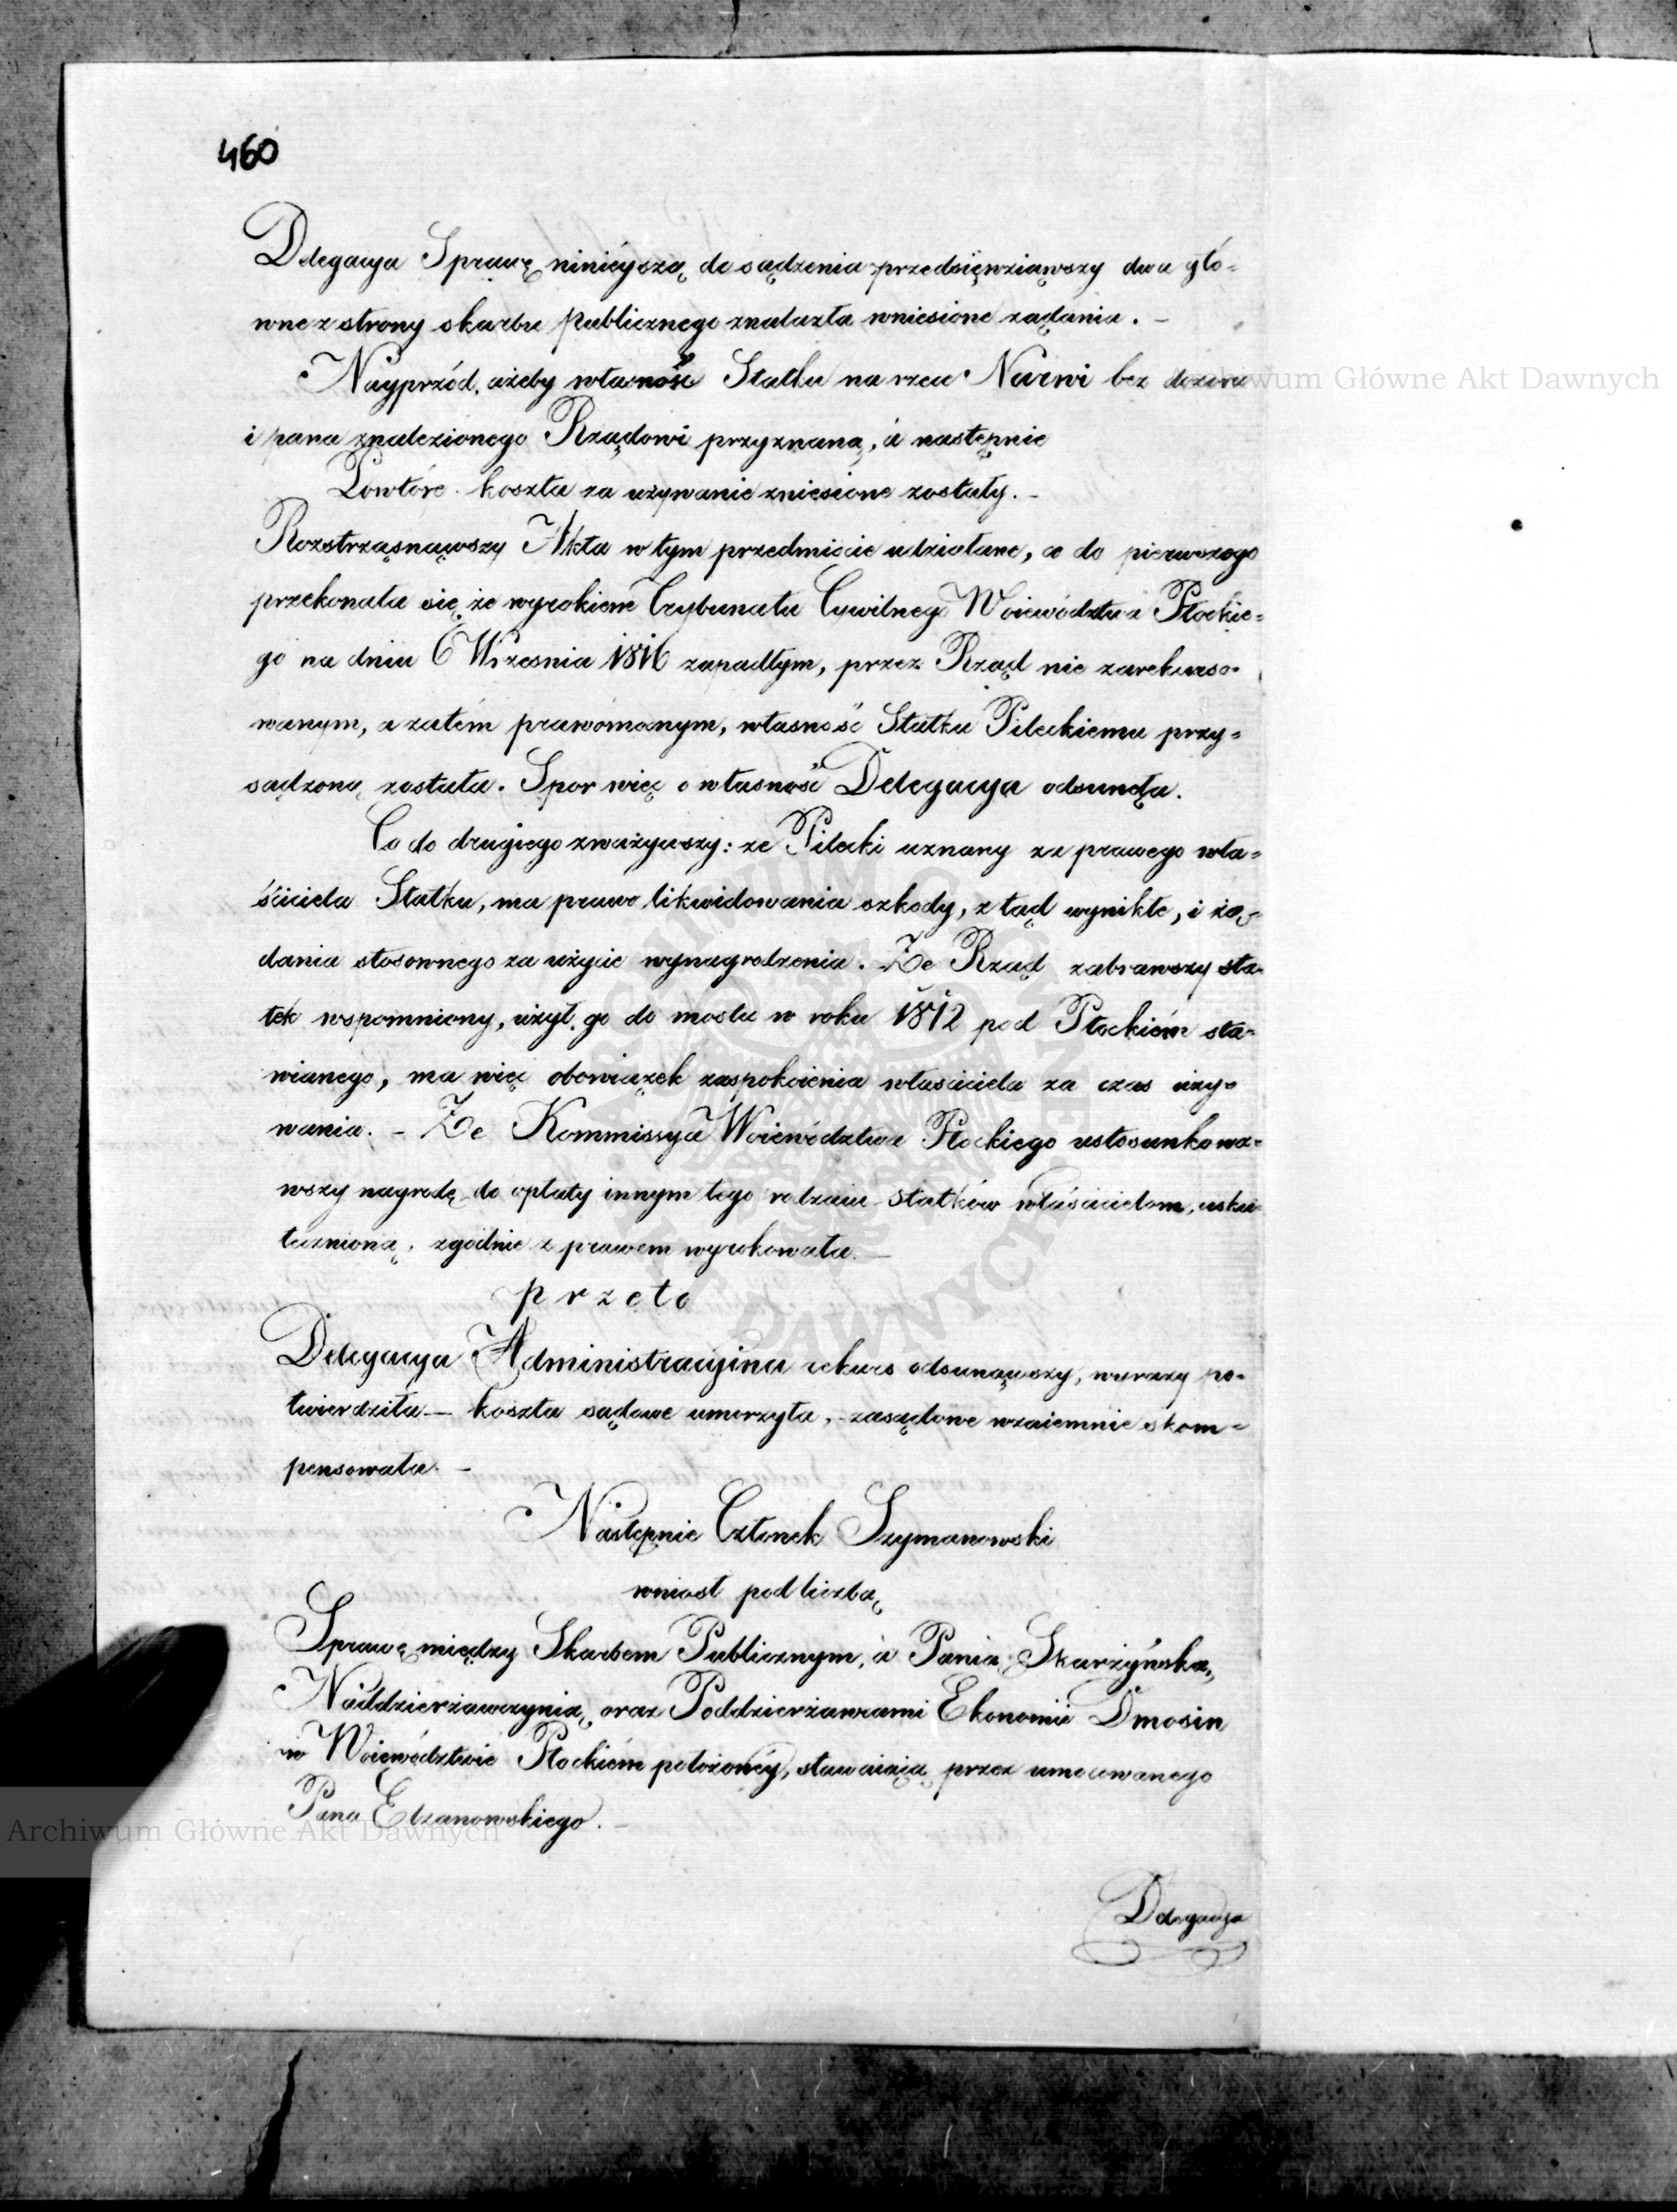 460
Delegacya Sprawę ninieyszą do sądzenia przedsięwziąwszy dwa głó=
wne z strony skarbu publicznego znalazła wniesione żądania. –
Nayprzód, ażeby własność Statku na rzece Narwi bez dozoru
i pana znalezionego Rządowi przyznaną, a następnie
Powtóre. koszta za używanie zniesione zostały. –
Rozstrząsnąwszy Akta w tym przedmiocie udziałane, co do pierwszego
przekonała się że wyrokiem Trybunału Cywilnego Woiewództwa Płockie=
go na dniu 6 Wrzesnia 1816 zapadłym, przez Rząd nie zarekurso=
wanym, a zatém prawomocnym, własność Statku Pileckiemu przy=
sądzoną została. Spor więc o własność Delegacya odsunęła.
Co do drugiego zważywszy: że Pilecki uznany za prawego wła=
ściciela Statku, ma prawo likwidowania szkody, z tąd wynikłe, i żą=
dania stosownego za użycie wynagrodzenia. Że Rząd zabrawszy sta=
tek wspomniony, użył go do mostu w roku 1812 pod Płockiém sta=
wianego, ma więc obowiązek zaspokoienia własciciela za czas uży=
wania. – Że Kommissya Woiewództwa Płockiego ustosunkowa=
wszy nagrodę do opłaty innym tego rodzaiu statków właścicielom, usku=
tecznioną, zgodnie z prawem wyrokowała. –
przeto
Delegacya Administracyina rekurs odsunąwszy, wyrazy po=
twierdziła – koszta sądowe umorzyła, zasądowe wzaiemnie skom=
pensowała. –
Następnie Członek Szymanowski
wniosł pod liczbą
Sprawę między Skarbem Publicznym, a Panią Skarżyńską,
Naddzierżawczynią, oraz Poddzierżawcami Ekonomii Dmosin
w Woiewództwie Płockiém położonéy, stawaiącą przez umocowanego
Pana Elzanowskiego. –
Delegacya
Archiwum Główne Akt Dawnych
Archiwum Główne Akt Dawnych